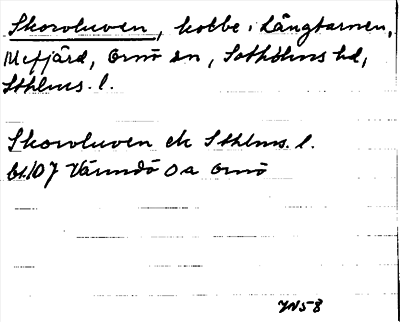 Skorvluven, kobbe i Långtarmen,
Mefjärd, Ornö sn, Sotholms hd,
Sthlms. l.
Skorvluven ek Sthlms. l.
bl. 107 Värmdö Oa Ornö
YN58